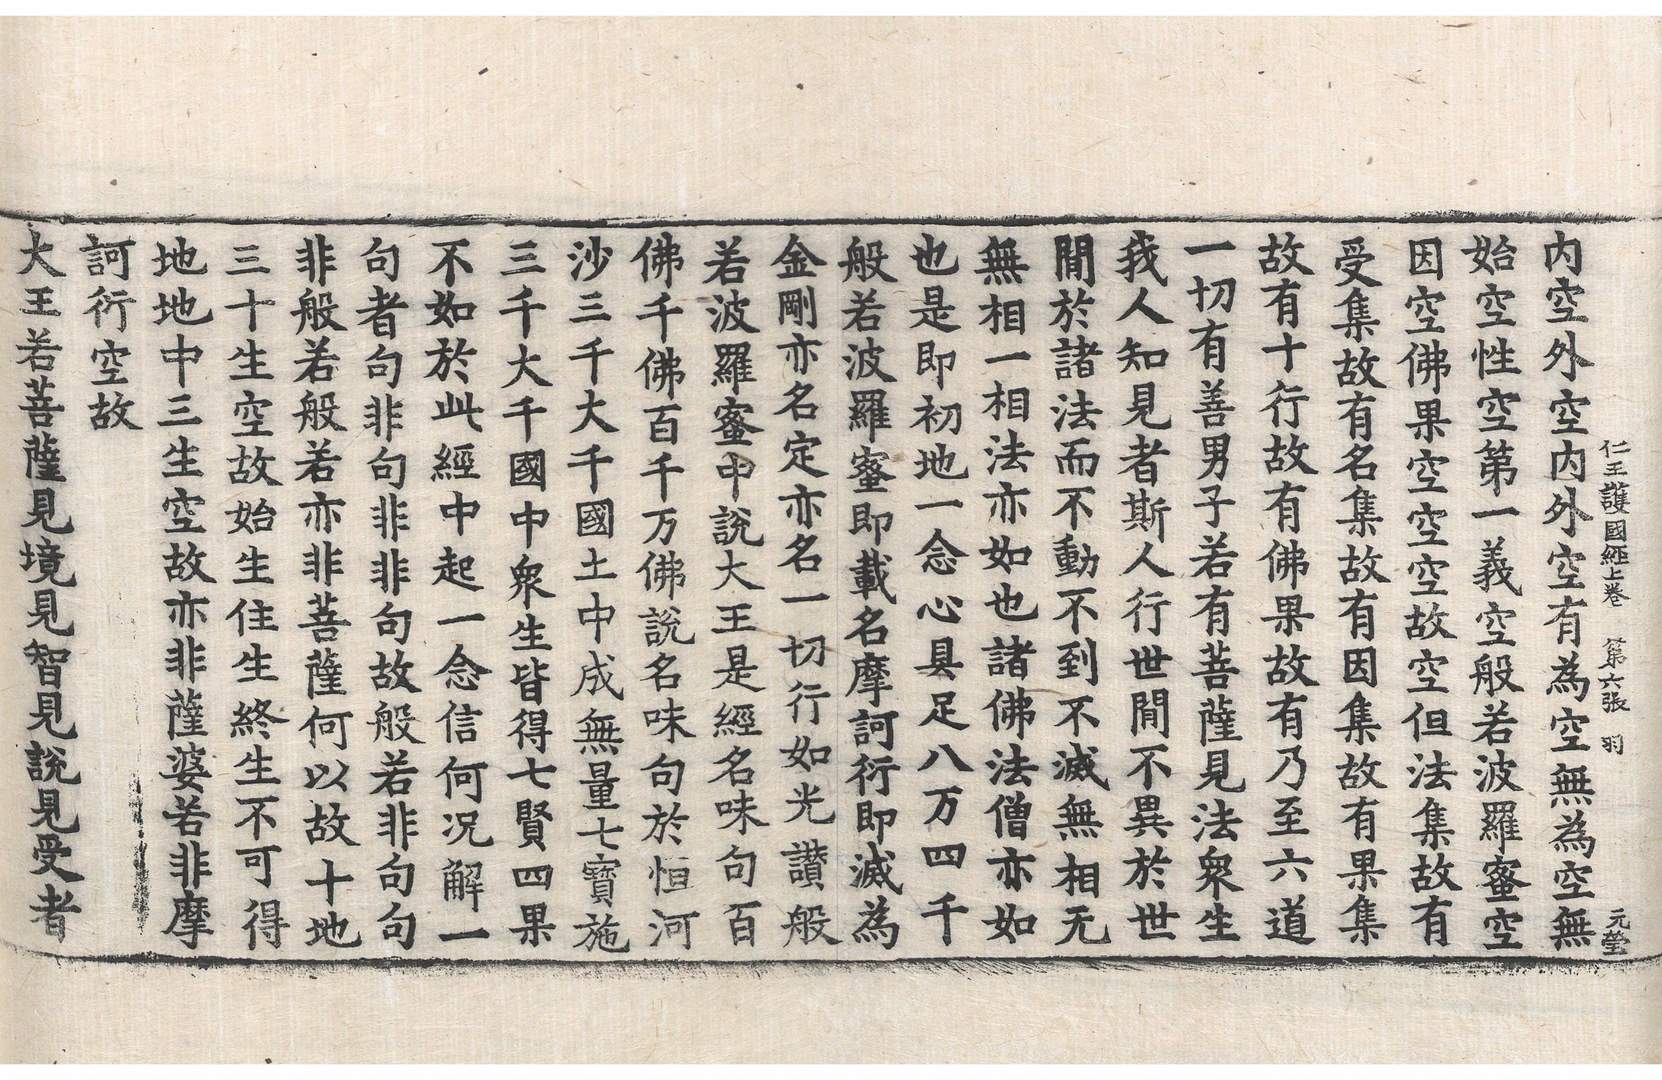 仁王護國經上卷 第六張 羽 元瑩
内空外空内外空有為空無為空無
始空性空第一義空般若波羅蜜空
因空佛果空空空故空但法集故有
受集故有名集故有因集故有果集
故有十行故有佛果故有乃至六道
一切有善男子若有菩薩見法衆生
我人知見者斯人行世間不異於世
間於諸法而不動不到不滅無相无
無相一相法亦如也諸佛法僧亦如
也是即初地一念心具足八万四千
般若波羅蜜即載名摩訶衍即滅為
金剛亦名定亦名一切行如光讚般
若波羅蜜中說大王是經名味句百
佛千佛百千万佛說名味句於恒河
沙三千大千國土中成無量七寶施
三千大千國中衆生皆得七賢四果
不如於此經中起一念信何況解一
句者句非句非非句故般若非句句
非般若般若亦非菩薩何以故十地
三十生空故始生住生終生不可得
地地中三生空故亦非薩婆若非摩
訶衍空故
大王若菩薩見境見智見說見受者